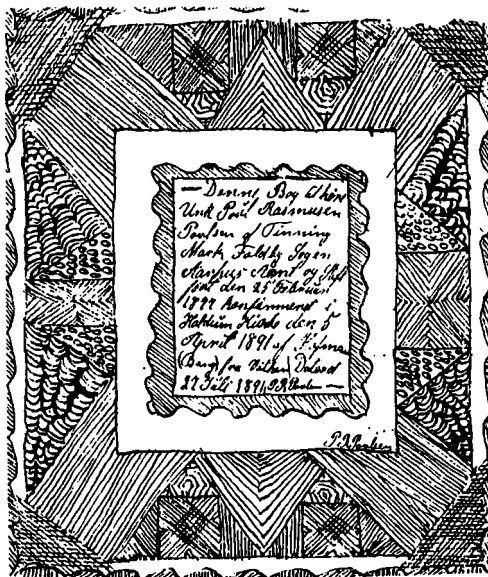 — Denne Bog tilhører
Unk Poul Rasmusen
Poulsen af Tinning
Mark Foldby Sogn
Aarhus Amt og
født den 25 Februar
1877 Konfirmeret i
Haldum Kirke den 5
April 1891 af
(Bang) fra Vitten Dateret
27 Juli 1891 P.R. Poulsen —
P.R. Poulsen